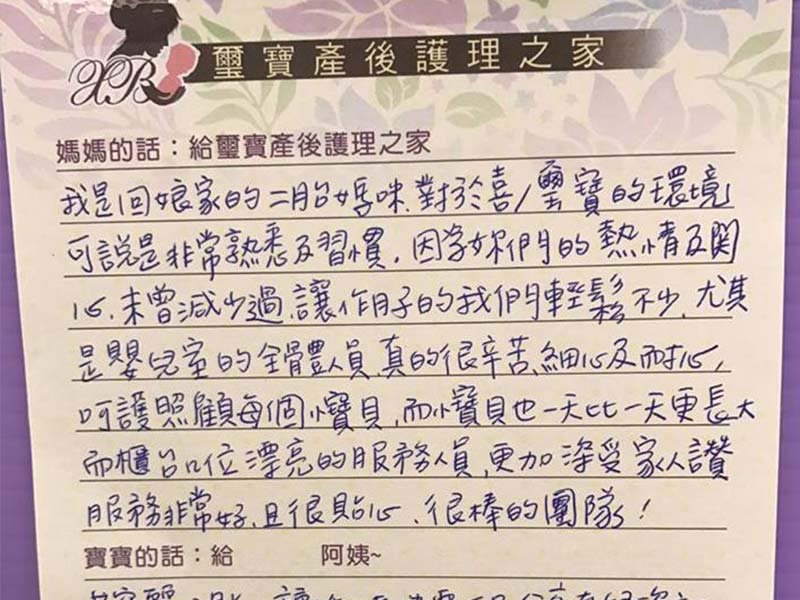 XB 璽寶產後護理之家
媽媽的話：給璽寶產後護理之家
我是回娘家的二胎媽咪、對於喜/璽寶的環境
可說是非常熟悉及習慣，因為妳們的熱情及關
心，未曾減少過，讓作月子的我們輕鬆不少，尤其
是嬰兒室的全體人員，真的很辛苦、細心及耐心，
呵護照顧每個小寶貝，而小寶貝也一天比一天更長大
而櫃台的位漂亮的服務人員，更加深受家人讚
服務非常好，且很貼心，很棒的團隊！
寶寶的話：給 阿姨~